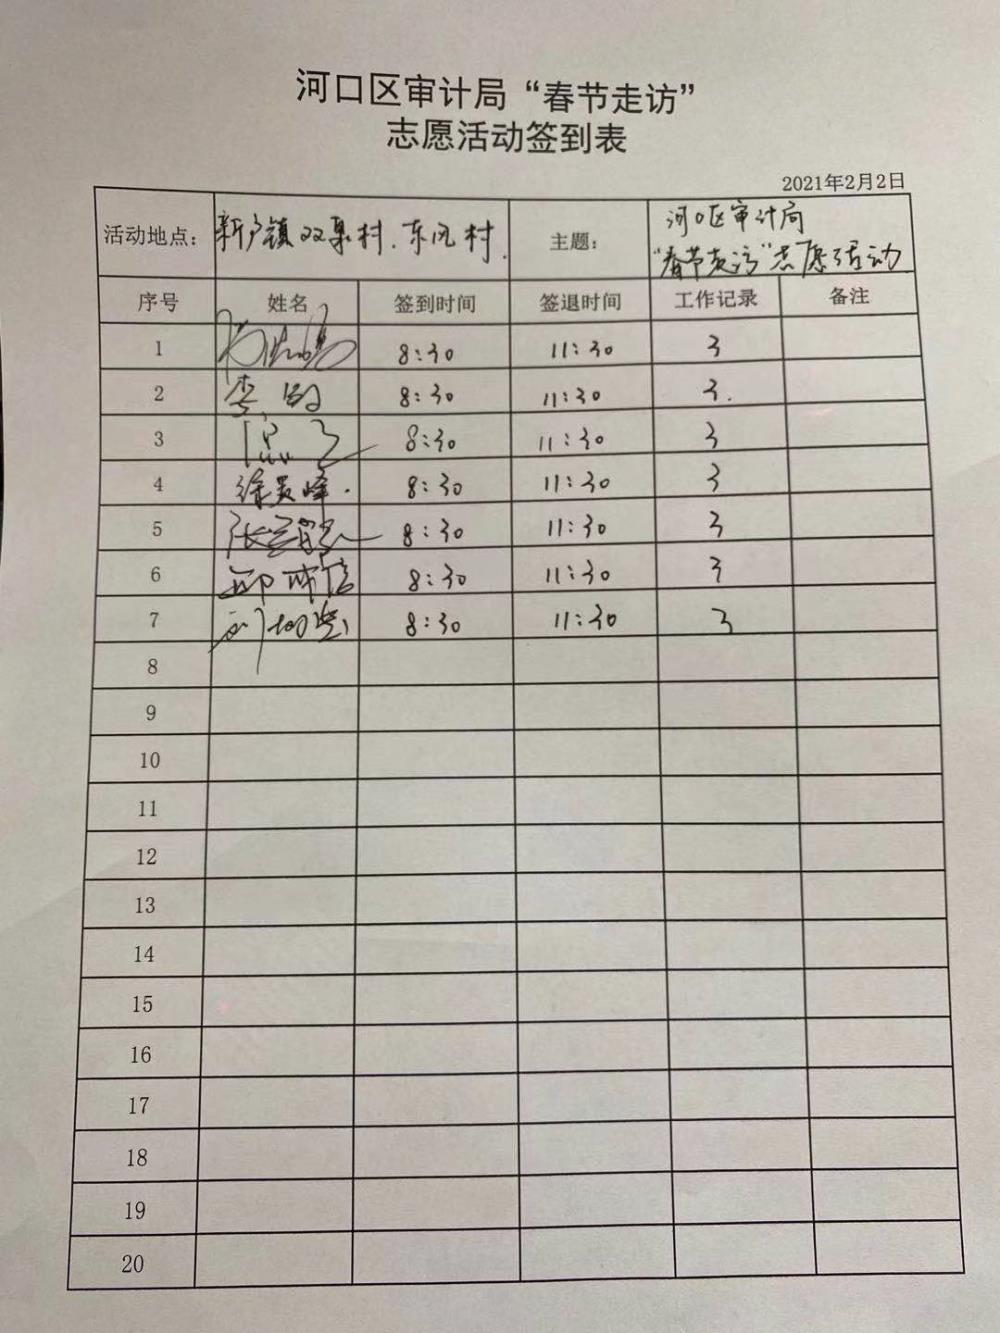 河口区审计局“春节走访”
志愿活动签到表
2021年2月2日
活动地点： 新户镇双泉村、东风村 主题： 河口区审计局
“春节走访”志愿活动
序号 姓名 签到时间 签退时间 工作记录 备注
1 8:30 11:30 3
2 李 8:30 11:30 3.
3 8:30 11:30 3
4 徐 峰. 8:30 11:30 3
5 张 8:30 11:30 3
6 8:30 11:30 3
7 8:30 11:30 3
8
9
10
11
12
13
14
15
16
17
18
19
20